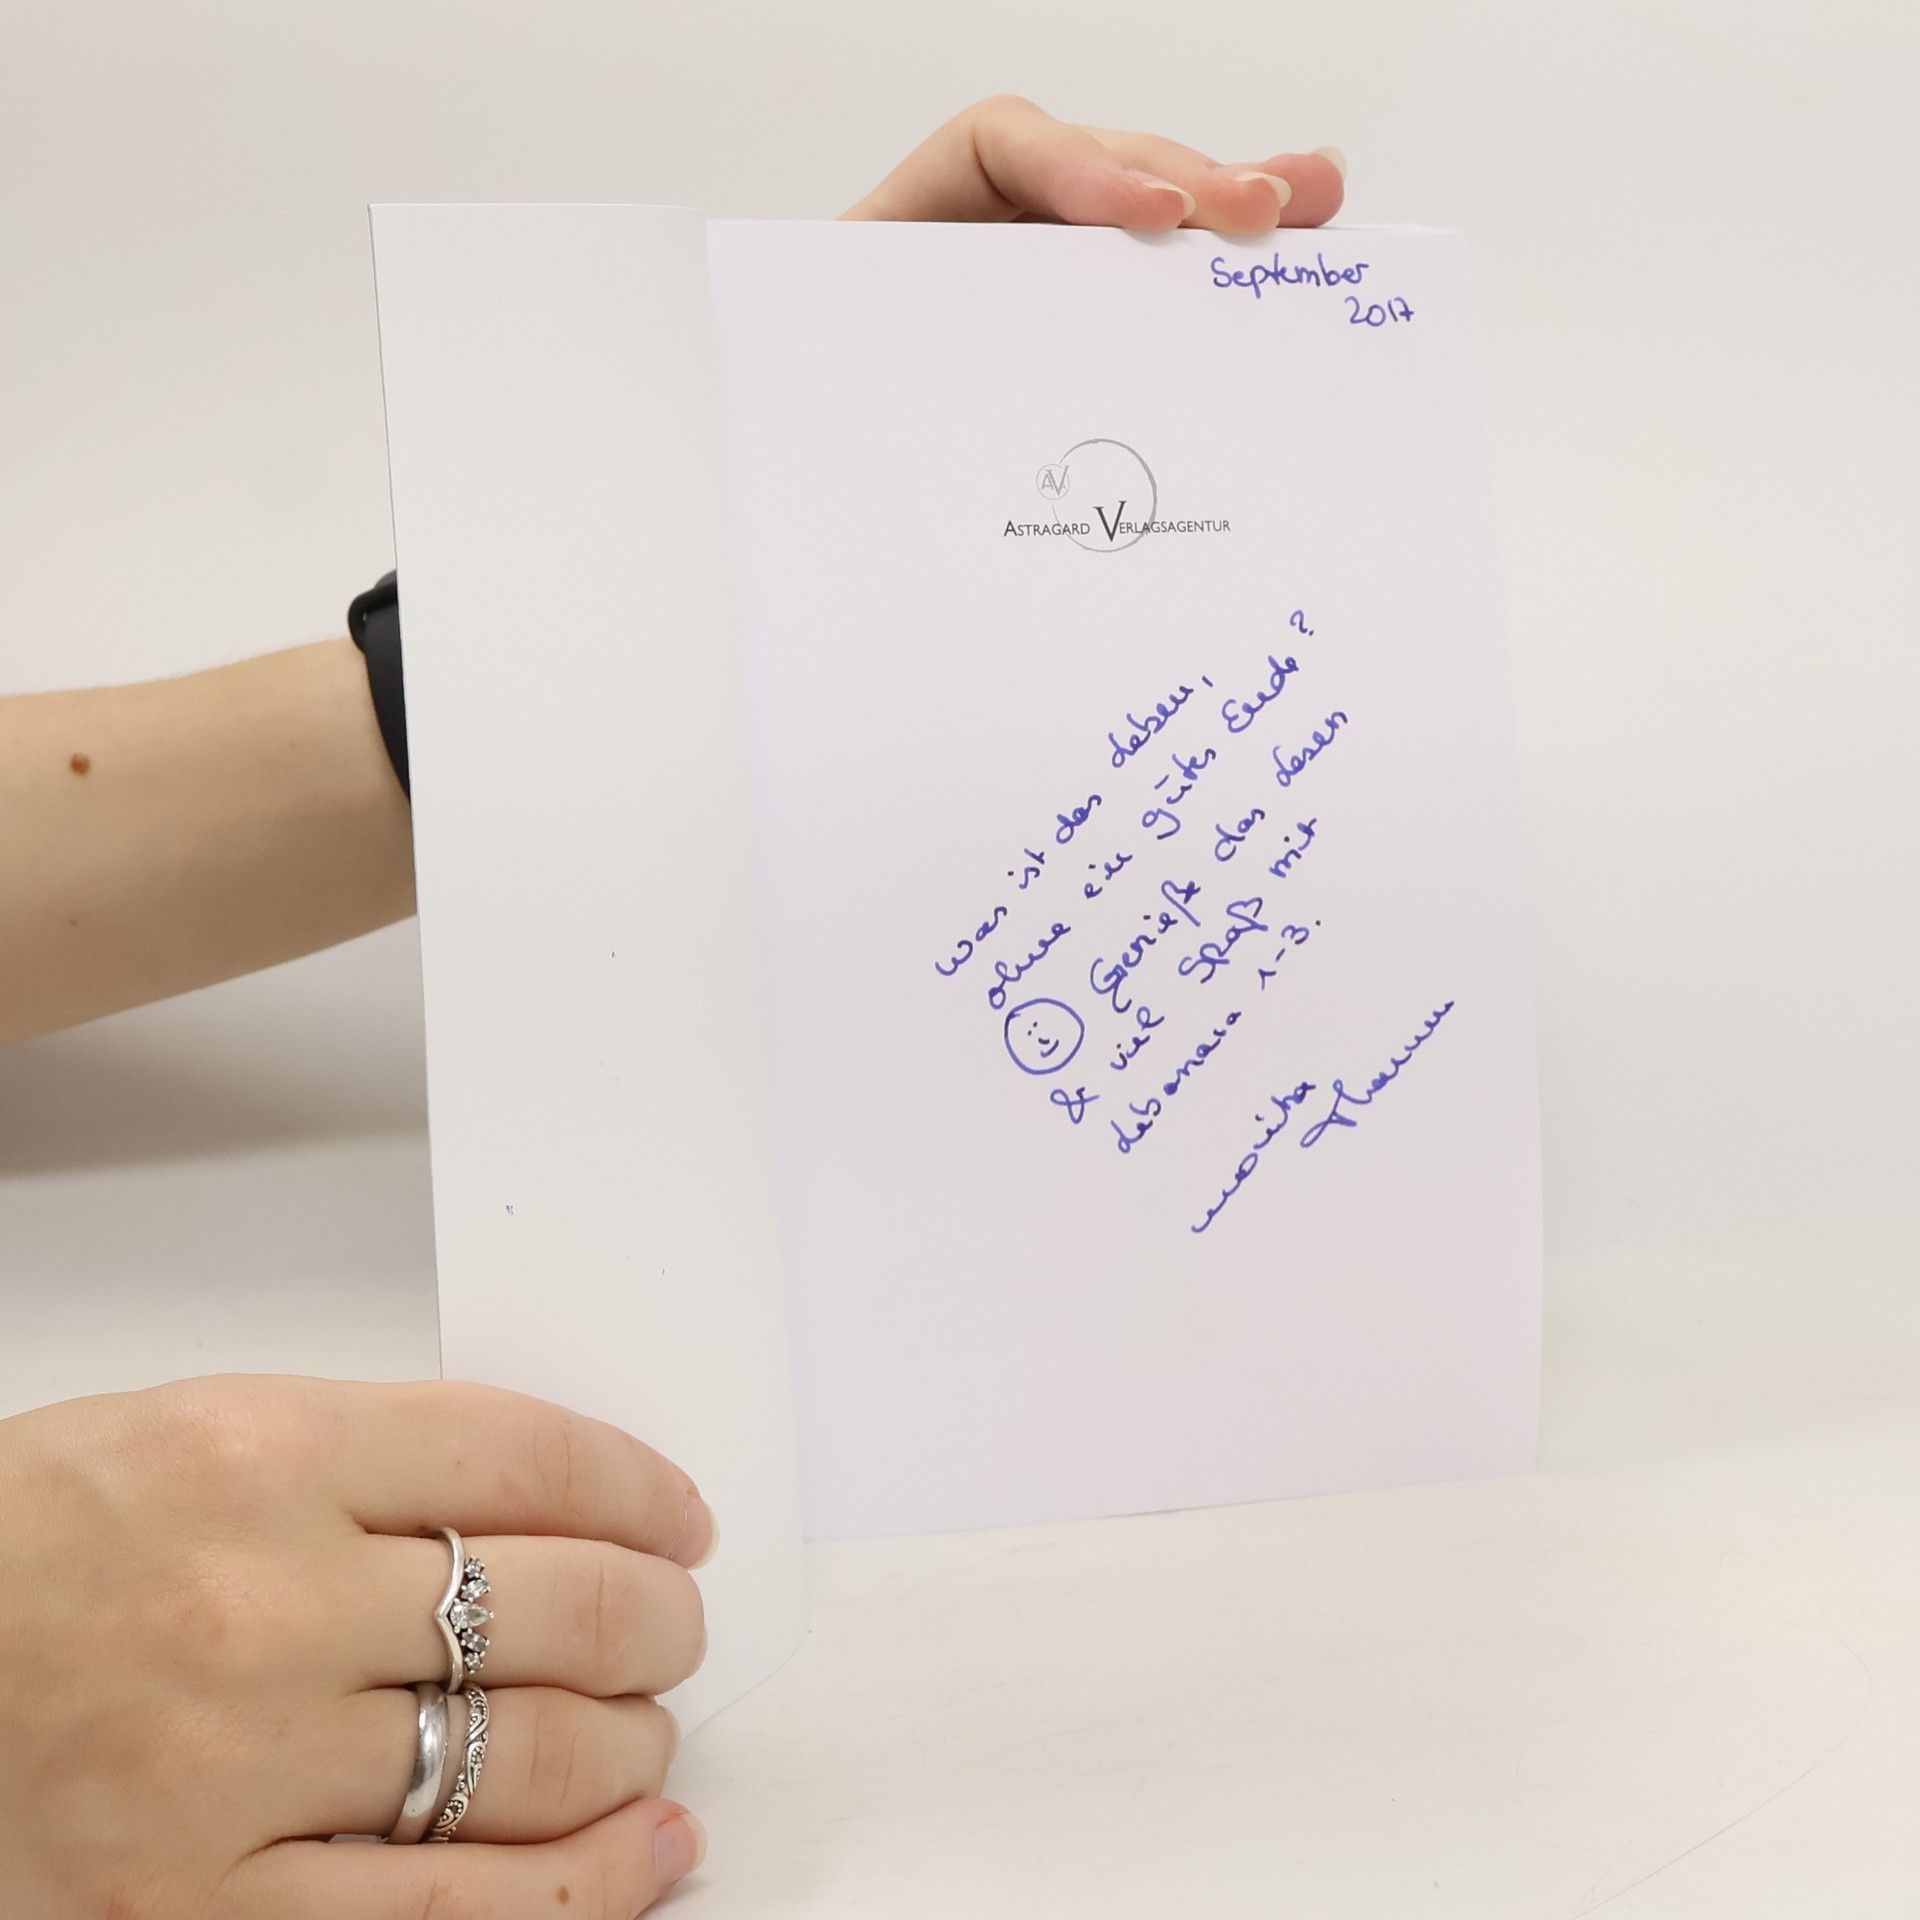 September
2017
AV
ASTRAGARD VERLAGSAGENTUR
Was ist das Leben,
ohne ein gutes Ende?
Genieß das Lesen
& viel Spaß mit
Lebonara 1-3.